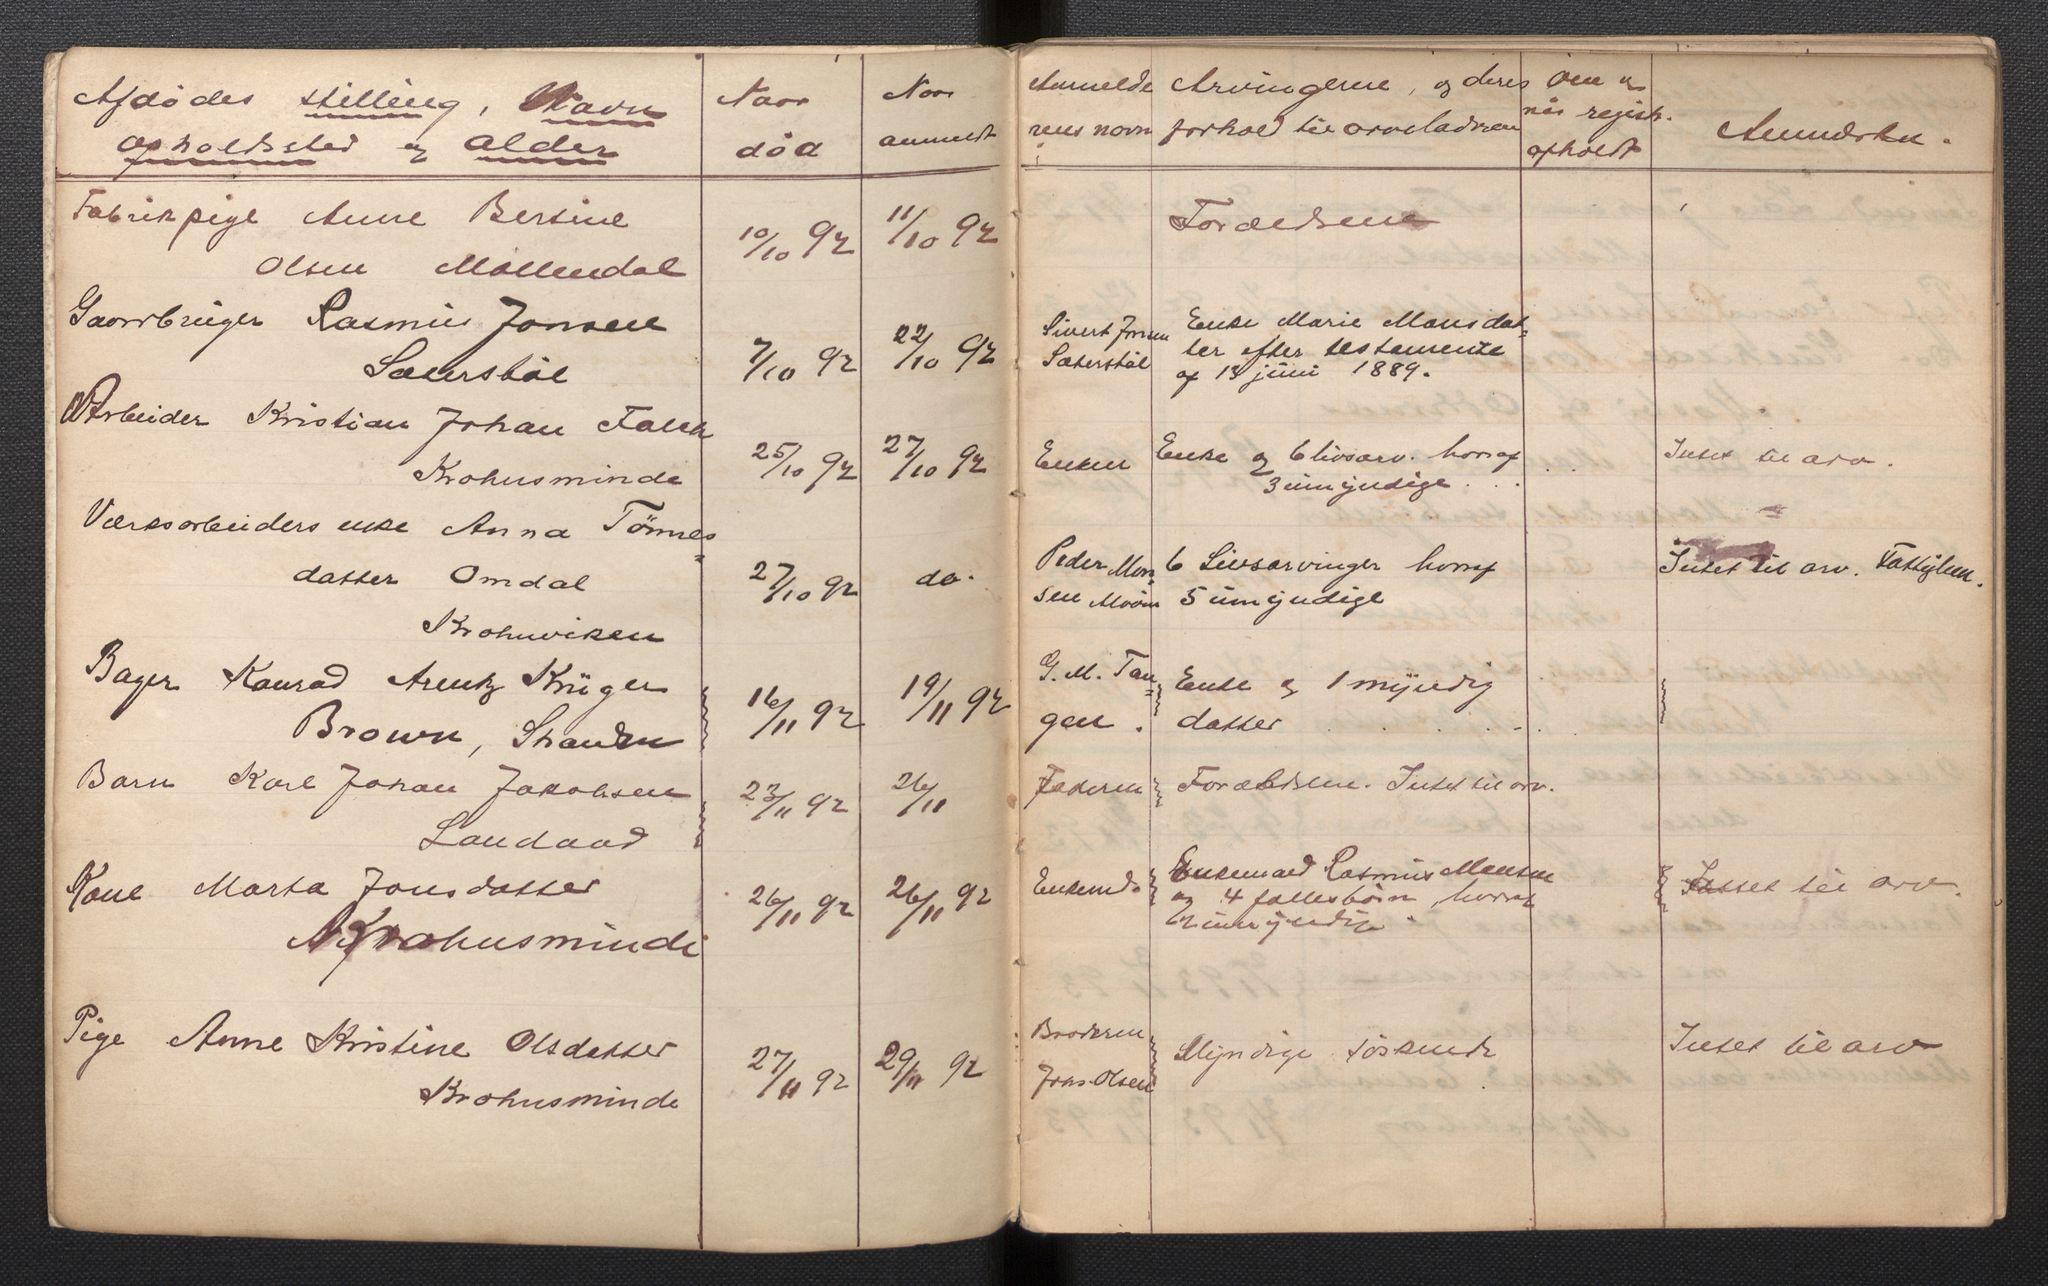 Afdødes stilling, Navn
opholdssted og alder
Naar
død
Naar
anmeldt
Anmelde
rens navn
Arvingerne, og deres
forhold til arveladeren
Om og
naar regist.
afholdt
Anmærkn.
Fabrikpige Anne Bertine
Olsen Møllendal
10/10 92
11/10 92
Forældrene
Gaardbruger Rasmus Jonsen
Sæterstøl
7/10 92
22/10 92
Sivert Jonsen
Sæterstøl
Enke Marie Monsdat-
ter efter testamente
af 13 juni 1889.
Arbeider Kristian Johan Falck
Krohnsminde
25/10 92
27/10 92
Enken
Enke og 6 livsarv. hvoraf
3 umyndige . . .
Intet til arv.
Værksarbeiders enke Anna Tönnes-
datter Omdal
Krohnviken
27/10 92
do.
Peder Mon-
sen
6 Livsarvinger hvoraf
5 umyndige
Intet til arv. Fattiglem.
Bager Konrad Arentz Krüger
Brown, Stranden
16/11 92
19/11 92
G. M. Tan-
gen.
Enke og 1 myndig
datter
Barn Karl Johan Jakobsen
Landaas
23/11 92
26/11
Faderen
Forældrene. Intet til arv.
Kone Marta Jonsdatter
Krohnsminde
26/11 92
26/11 92
Enkemd.
Enkemand Rasmus Monsen
og 4 fællesbörn, hvoraf
2 umyndige.
Intet til arv.
Pige Anne Kristine Olsdatter
Krohnsminde
27/11 92
29/11 92
Broderen
Jons Olsen
Myndige söskende
Intet til arv